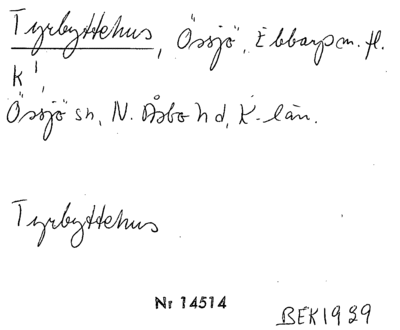 Tyrbyttehus, Össjö, Ebbarp m. fl.
K
Össjö sn, N. Åsbo hd, K-län.
Tyrbyttehus
Nr 14514
BEK1939